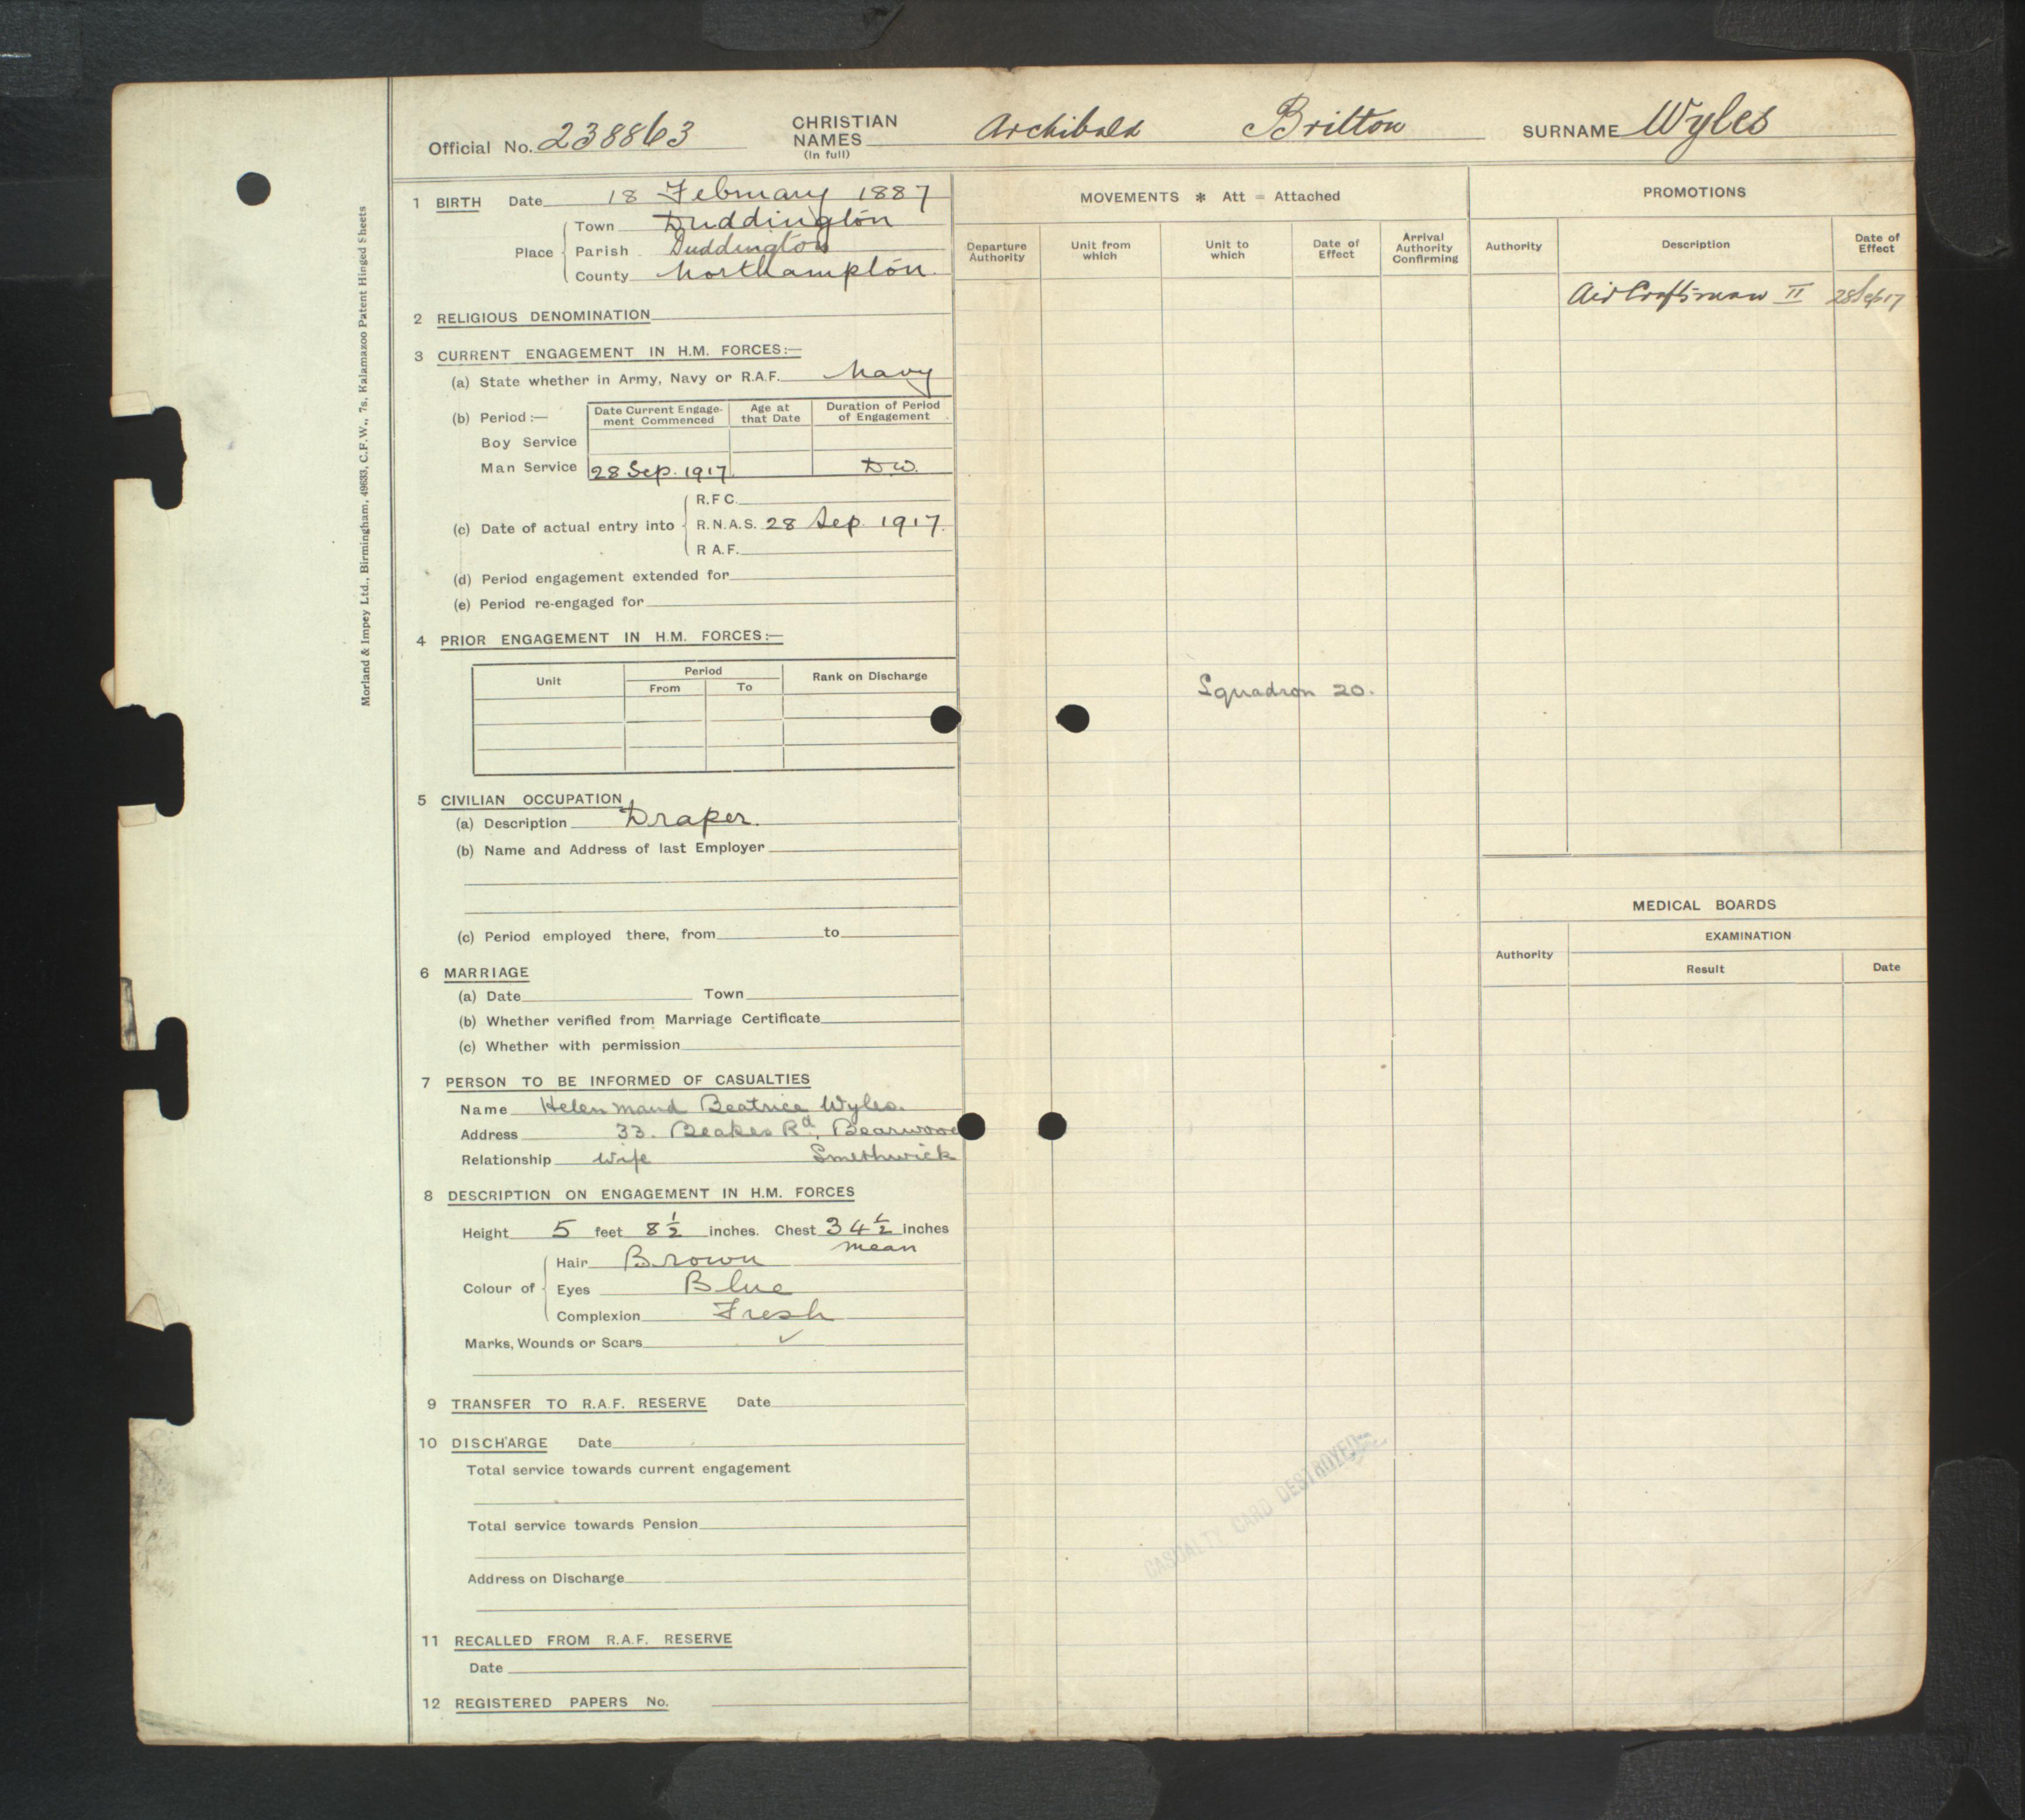 Official No. 238863 CHRISTIAN NAMES (In full) Archibald Britton SURNAME Wyles
1 BIRTH Date 18 February 1887
Place Town Duddington
Parish Duddington
County Northampton.
2 RELIGIOUS DENOMINATION
3 CURRENT ENGAGEMENT IN H.M. FORCES:—
(a) State whether in Army, Navy or R.A.F. Navy
(b) Period:— Date Current Engage-ment Commenced Age at that Date Duration of Period of Engagement
Boy Service
Man Service 28 Sep. 1917. DW.
(c) Date of actual entry into R.F.C.
R.N.A.S. 28 Sep. 1917.
R.A.F.
(d) Period engagement extended for
(e) Period re-engaged for
4 PRIOR ENGAGEMENT IN H.M. FORCES:—
Unit Period Rank on Discharge
From To
5 CIVILIAN OCCUPATION
(a) Description Draper.
(b) Name and Address of last Employer
(c) Period employed there, from to
6 MARRIAGE
(a) Date Town
(b) Whether verified from Marriage Certificate
(c) Whether with permission
7 PERSON TO BE INFORMED OF CASUALTIES
Name Helen Maud Beatrice Wyles.
Address 33. Beakes Rd, Bearwood
Relationship Wife Smethwick
8 DESCRIPTION ON ENGAGEMENT IN H.M. FORCES
Height 5 feet 8½ inches. Chest 34½ inches
mean
Colour of Hair Brown
Eyes Blue
Complexion Fresh
Marks, Wounds or Scars ✓
9 TRANSFER TO R.A.F. RESERVE Date
10 DISCHARGE Date
Total service towards current engagement
Total service towards Pension
Address on Discharge
11 RECALLED FROM R.A.F. RESERVE
Date
12 REGISTERED PAPERS No.
MOVEMENTS * Att = Attached
Departure Authority Unit from which Unit to which Date of Effect Arrival Authority Confirming
Squadron 20.
CASUALTY CARD DESTROYED
PROMOTIONS
Authority Description Date of Effect
Air Craftsman II 28 Sep 17
MEDICAL BOARDS
Authority EXAMINATION
Result Date
Morland & Impey Ltd., Birmingham, 49633, C.F.W., 7s, Kalamazoo Patent Hinged Sheets